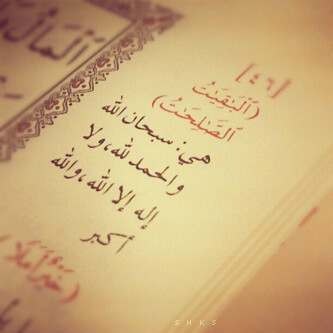 ٱلْمَالُ
[٤٦]
(ٱلْبَٰقِيَٰتُ
ٱلصَّٰلِحَٰتُ)
هي: سبحان الله
والحمد لله، ولا
إله إلا الله، والله
أكبر
(خَيْرٌ أَمَلًا)
S H K S